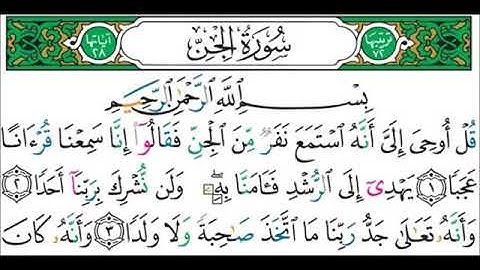 ترتيبها ٧٢ سُورَةُ الْجِنِّ آياتها ٢٨
بِسْمِ اللَّهِ الرَّحْمَٰنِ الرَّحِيمِ
قُلْ أُوحِيَ إِلَيَّ أَنَّهُ اسْتَمَعَ نَفَرٌ مِّنَ الْجِنِّ فَقَالُوا إِنَّا سَمِعْنَا قُرْءَانًا
عَجَبًا ١ يَهْدِي إِلَى الرُّشْدِ فَـَٔامَنَّا بِهِۦ ۖ وَلَن نُّشْرِكَ بِرَبِّنَا أَحَدًا ٢
وَأَنَّهُ تَعَالَىٰ جَدُّ رَبِّنَا مَا اتَّخَذَ صَاحِبَةً وَلَا وَلَدًا ٣ وَأَنَّهُ كَانَ